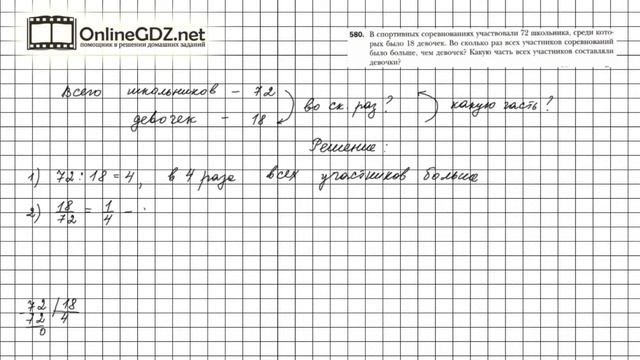 OnlineGDZ.net
помощник в решении домашних заданий
580. В спортивных соревнованиях участвовали 72 школьника, среди кото-
рых было 18 девочек. Во сколько раз всех участников соревнований
было больше, чем девочек? Какую часть всех участников составляли
девочки?
Всего школьников – 72
девочек – 18
во ск. раз?
какую часть?
Решение:
1) 72 : 18 = 4, в 4 раза всех участников больше
2) 18/72 = 1/4 –
72 | 18
72 4
0